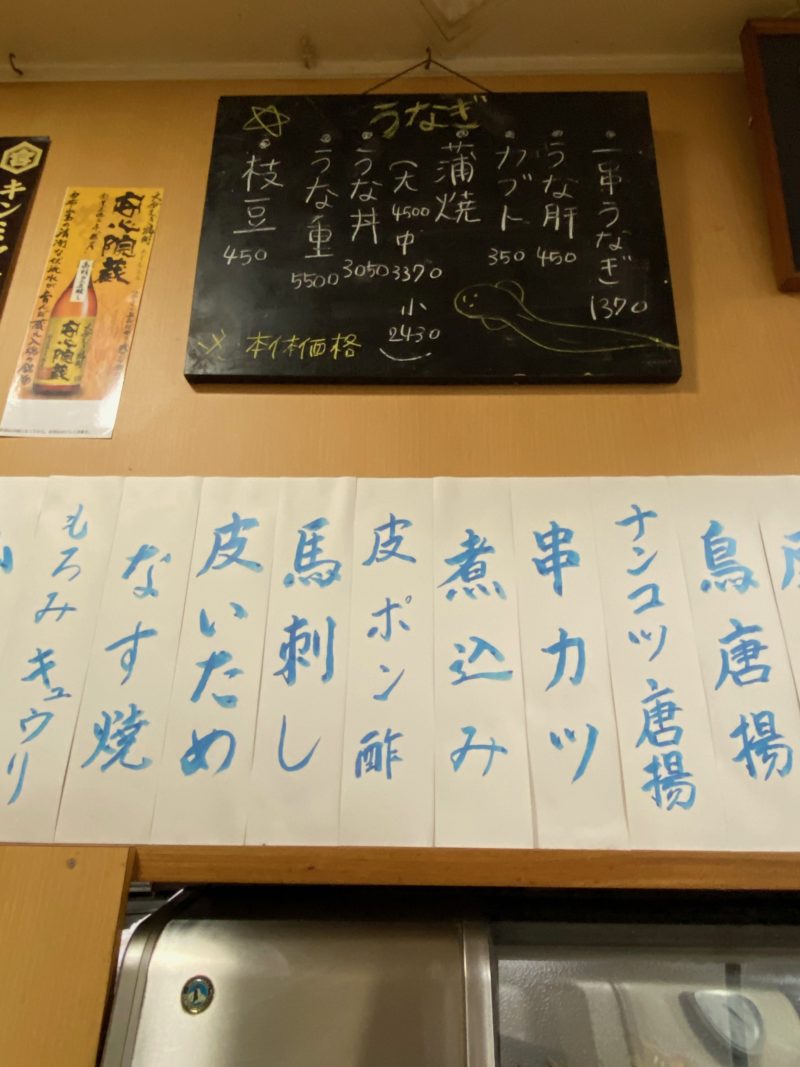 うなぎ
一串うなぎ
1370
うな肝
450
カブト
350
蒲焼
(大
4500
中
3370
小
2430
うな丼
3050
うな重
5500
枝豆
450
本体価格
安心院蔵
安心院蔵
キンミヤ
鳥唐揚
ナンコツ唐揚
串カツ
煮込み
皮ポン酢
馬刺し
皮いため
なす焼
もろみキュウリ